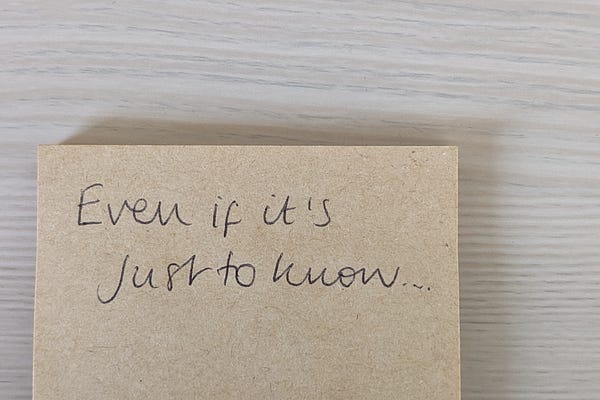 Even if it's
Just to know...